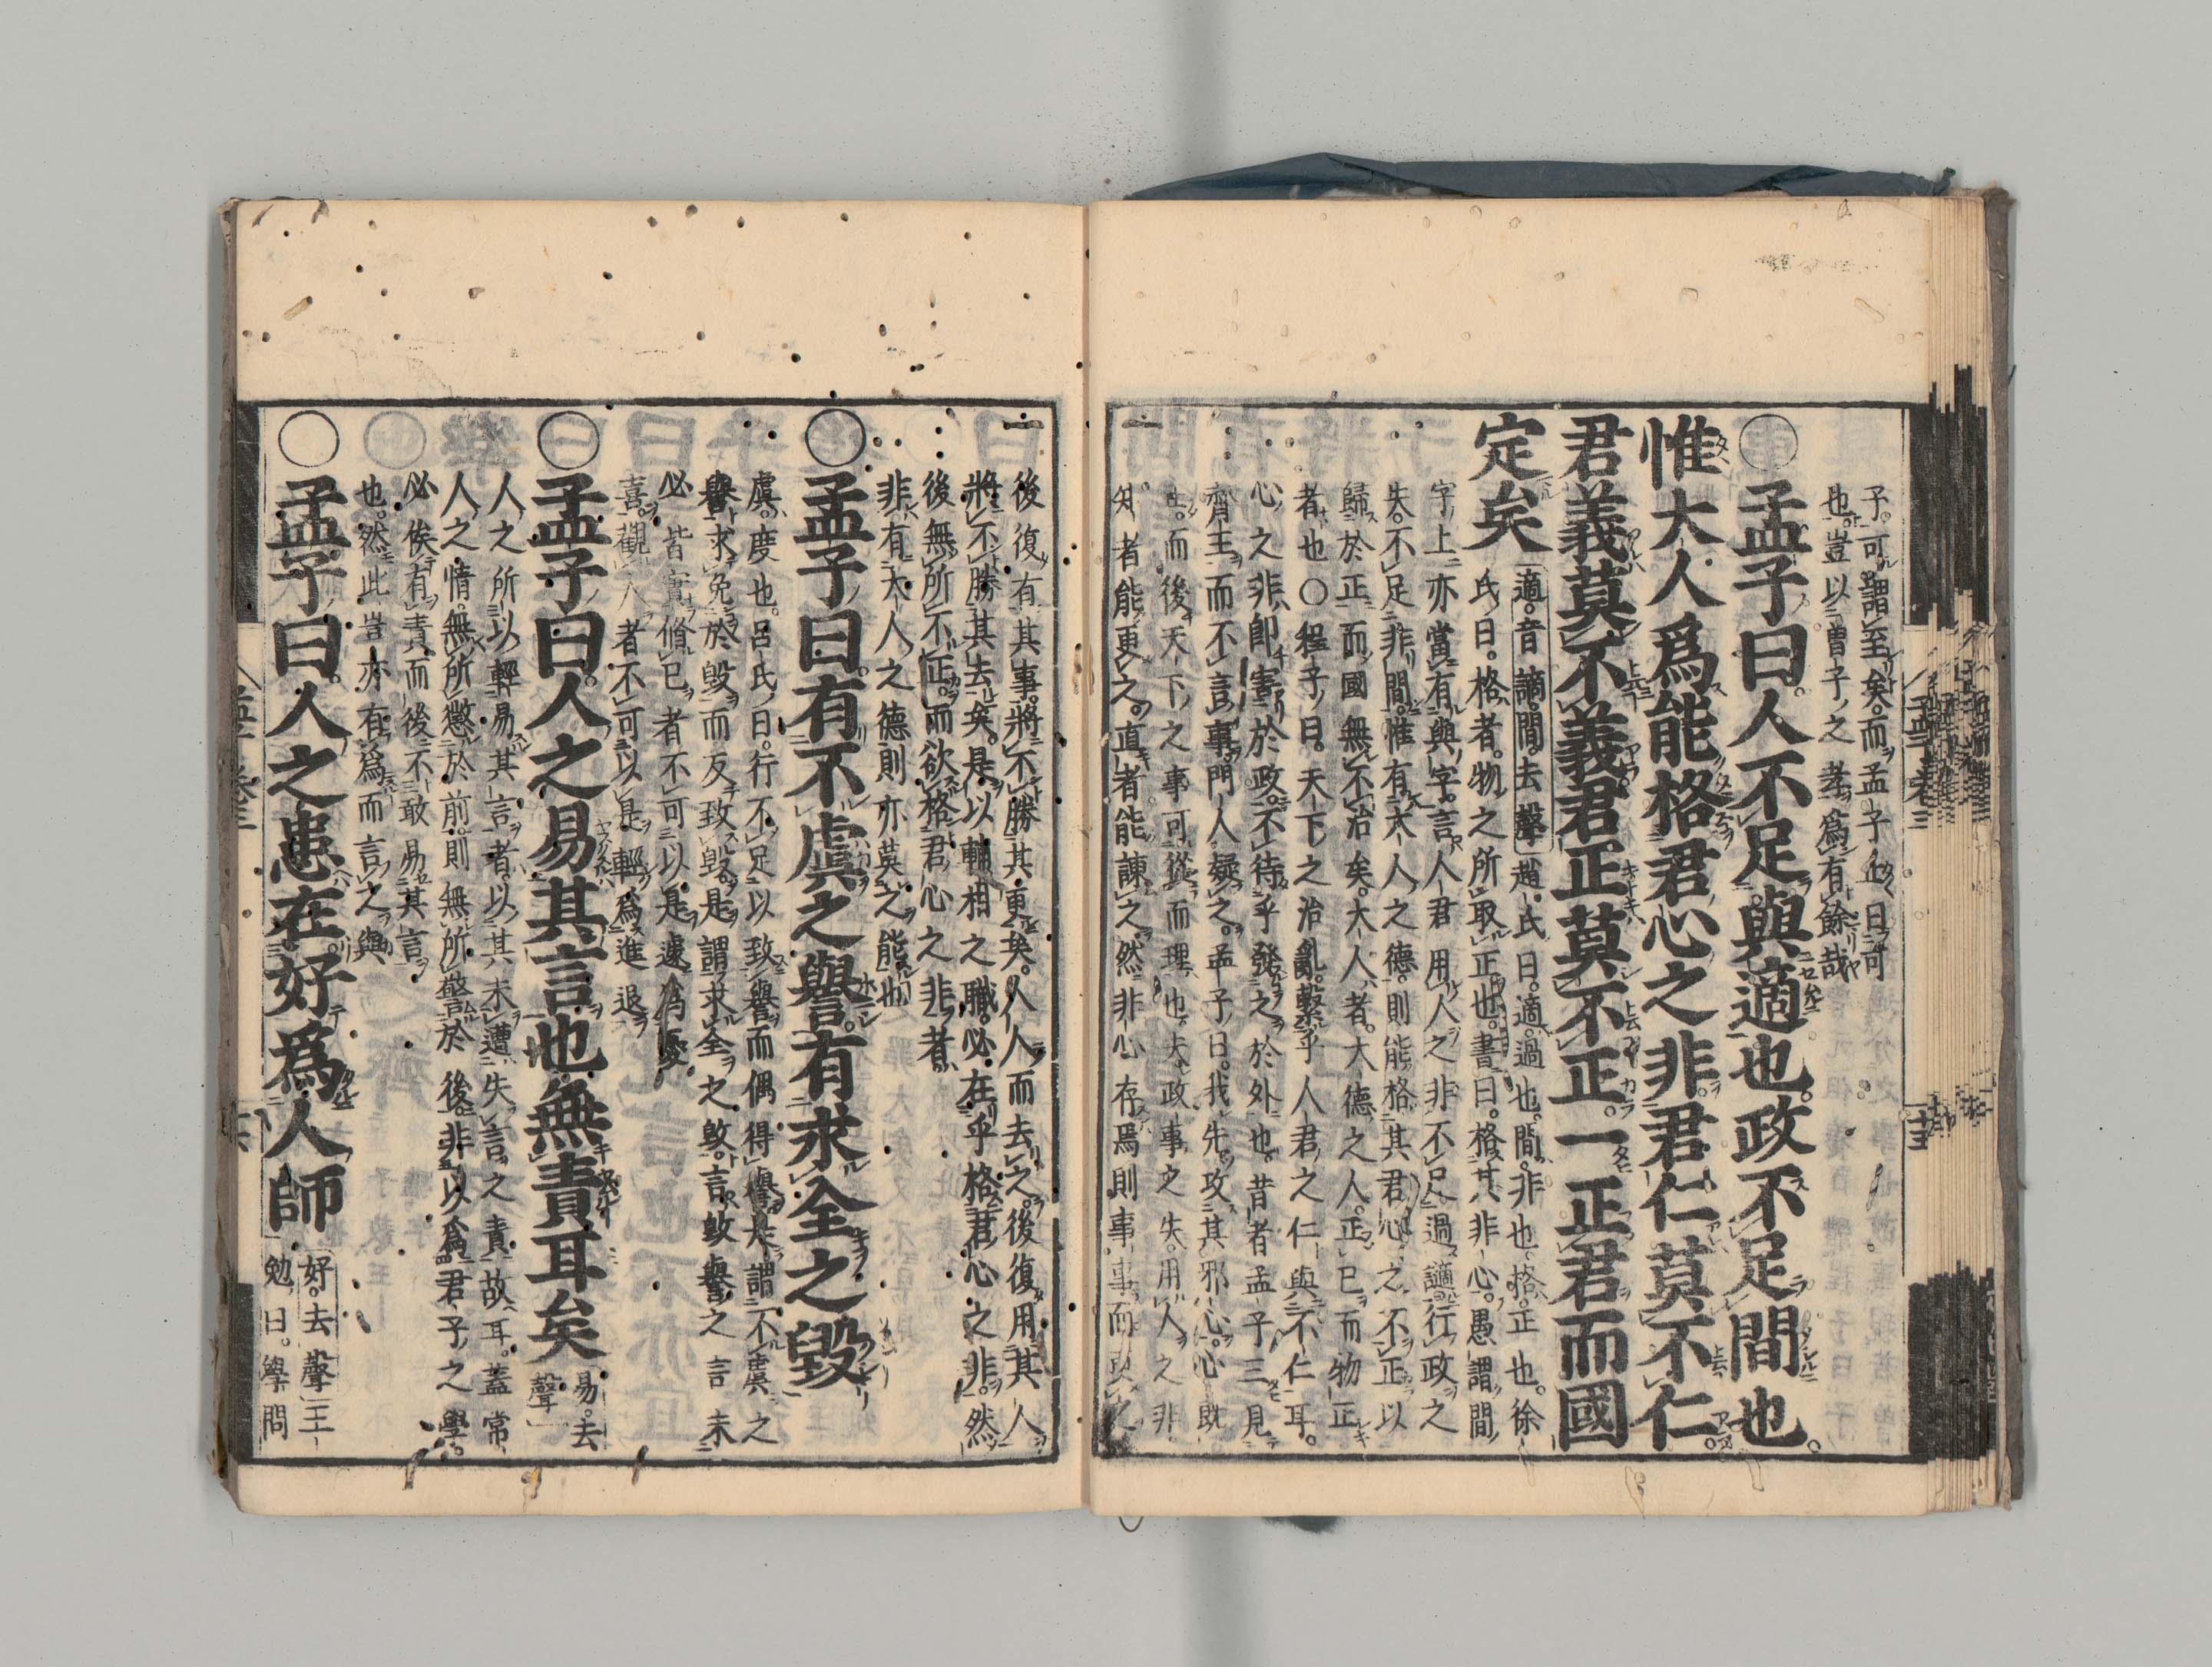 子可謂至矣。而孟子止曰可
也。豈以曾子之孝爲有餘哉
○孟子曰。人不足與適也。政不足間也。
惟大人爲能格君心之非。君仁莫不仁。
君義莫不義。君正莫不正。一正君而國
定矣
適。音謫。間。去聲。趙氏曰。適。過也。間。非也。格。正也。徐
氏曰。格者。物之所取正也。書曰。格其非心。愚謂。間
字上亦當有與字。言人君用人之非。不足過謫。行政之
失。不足非間。惟有大人之德。則能格其君心之不正以
歸於正。而國無不治矣。大人者。大德之人。正己而物正
者也○程子曰。天下之治亂。繫乎人君之仁與不仁耳。
心之非。卽害於政。不待乎發之於外也。昔者孟子三見
齊王。而不言事。門人疑之。孟子曰。我先攻其邪心。心既
正。而後天下之事可從而理也。夫政事之失。用人之非。
知者能更之。直者能諫之。然非心存焉則事事而更之
孟子 卷三
十五
後復有其事。將不勝其更矣。人人而去之。後復用其人
將不勝其去矣。是以輔相之職。必在乎格君心之非。然
後無所不正。而欲格君心之非者
非有大人之德則亦莫之能也
○孟子曰。有不虞之譽。有求全之毀
虞。度也。呂氏曰。行不足以致譽而偶得譽。是謂不虞之
譽。求免於毀而反致毀。是謂求全之毀。言毀譽之言未
必皆實。脩己者不可以是遽爲憂
喜。觀人者不可以是輕爲進退
○孟子曰。人之易其言也。無責耳矣
易。去
聲
人之所以輕易其言者。以其未遭失言之責故耳。蓋常
人之情。無所懲於前。則無所警於後。非以爲君子之學。
必俟有責而後不敢易其言
也。然此豈亦有爲而言之與
○孟子曰。人之患在好爲人師
好。去聲王
勉曰。學問